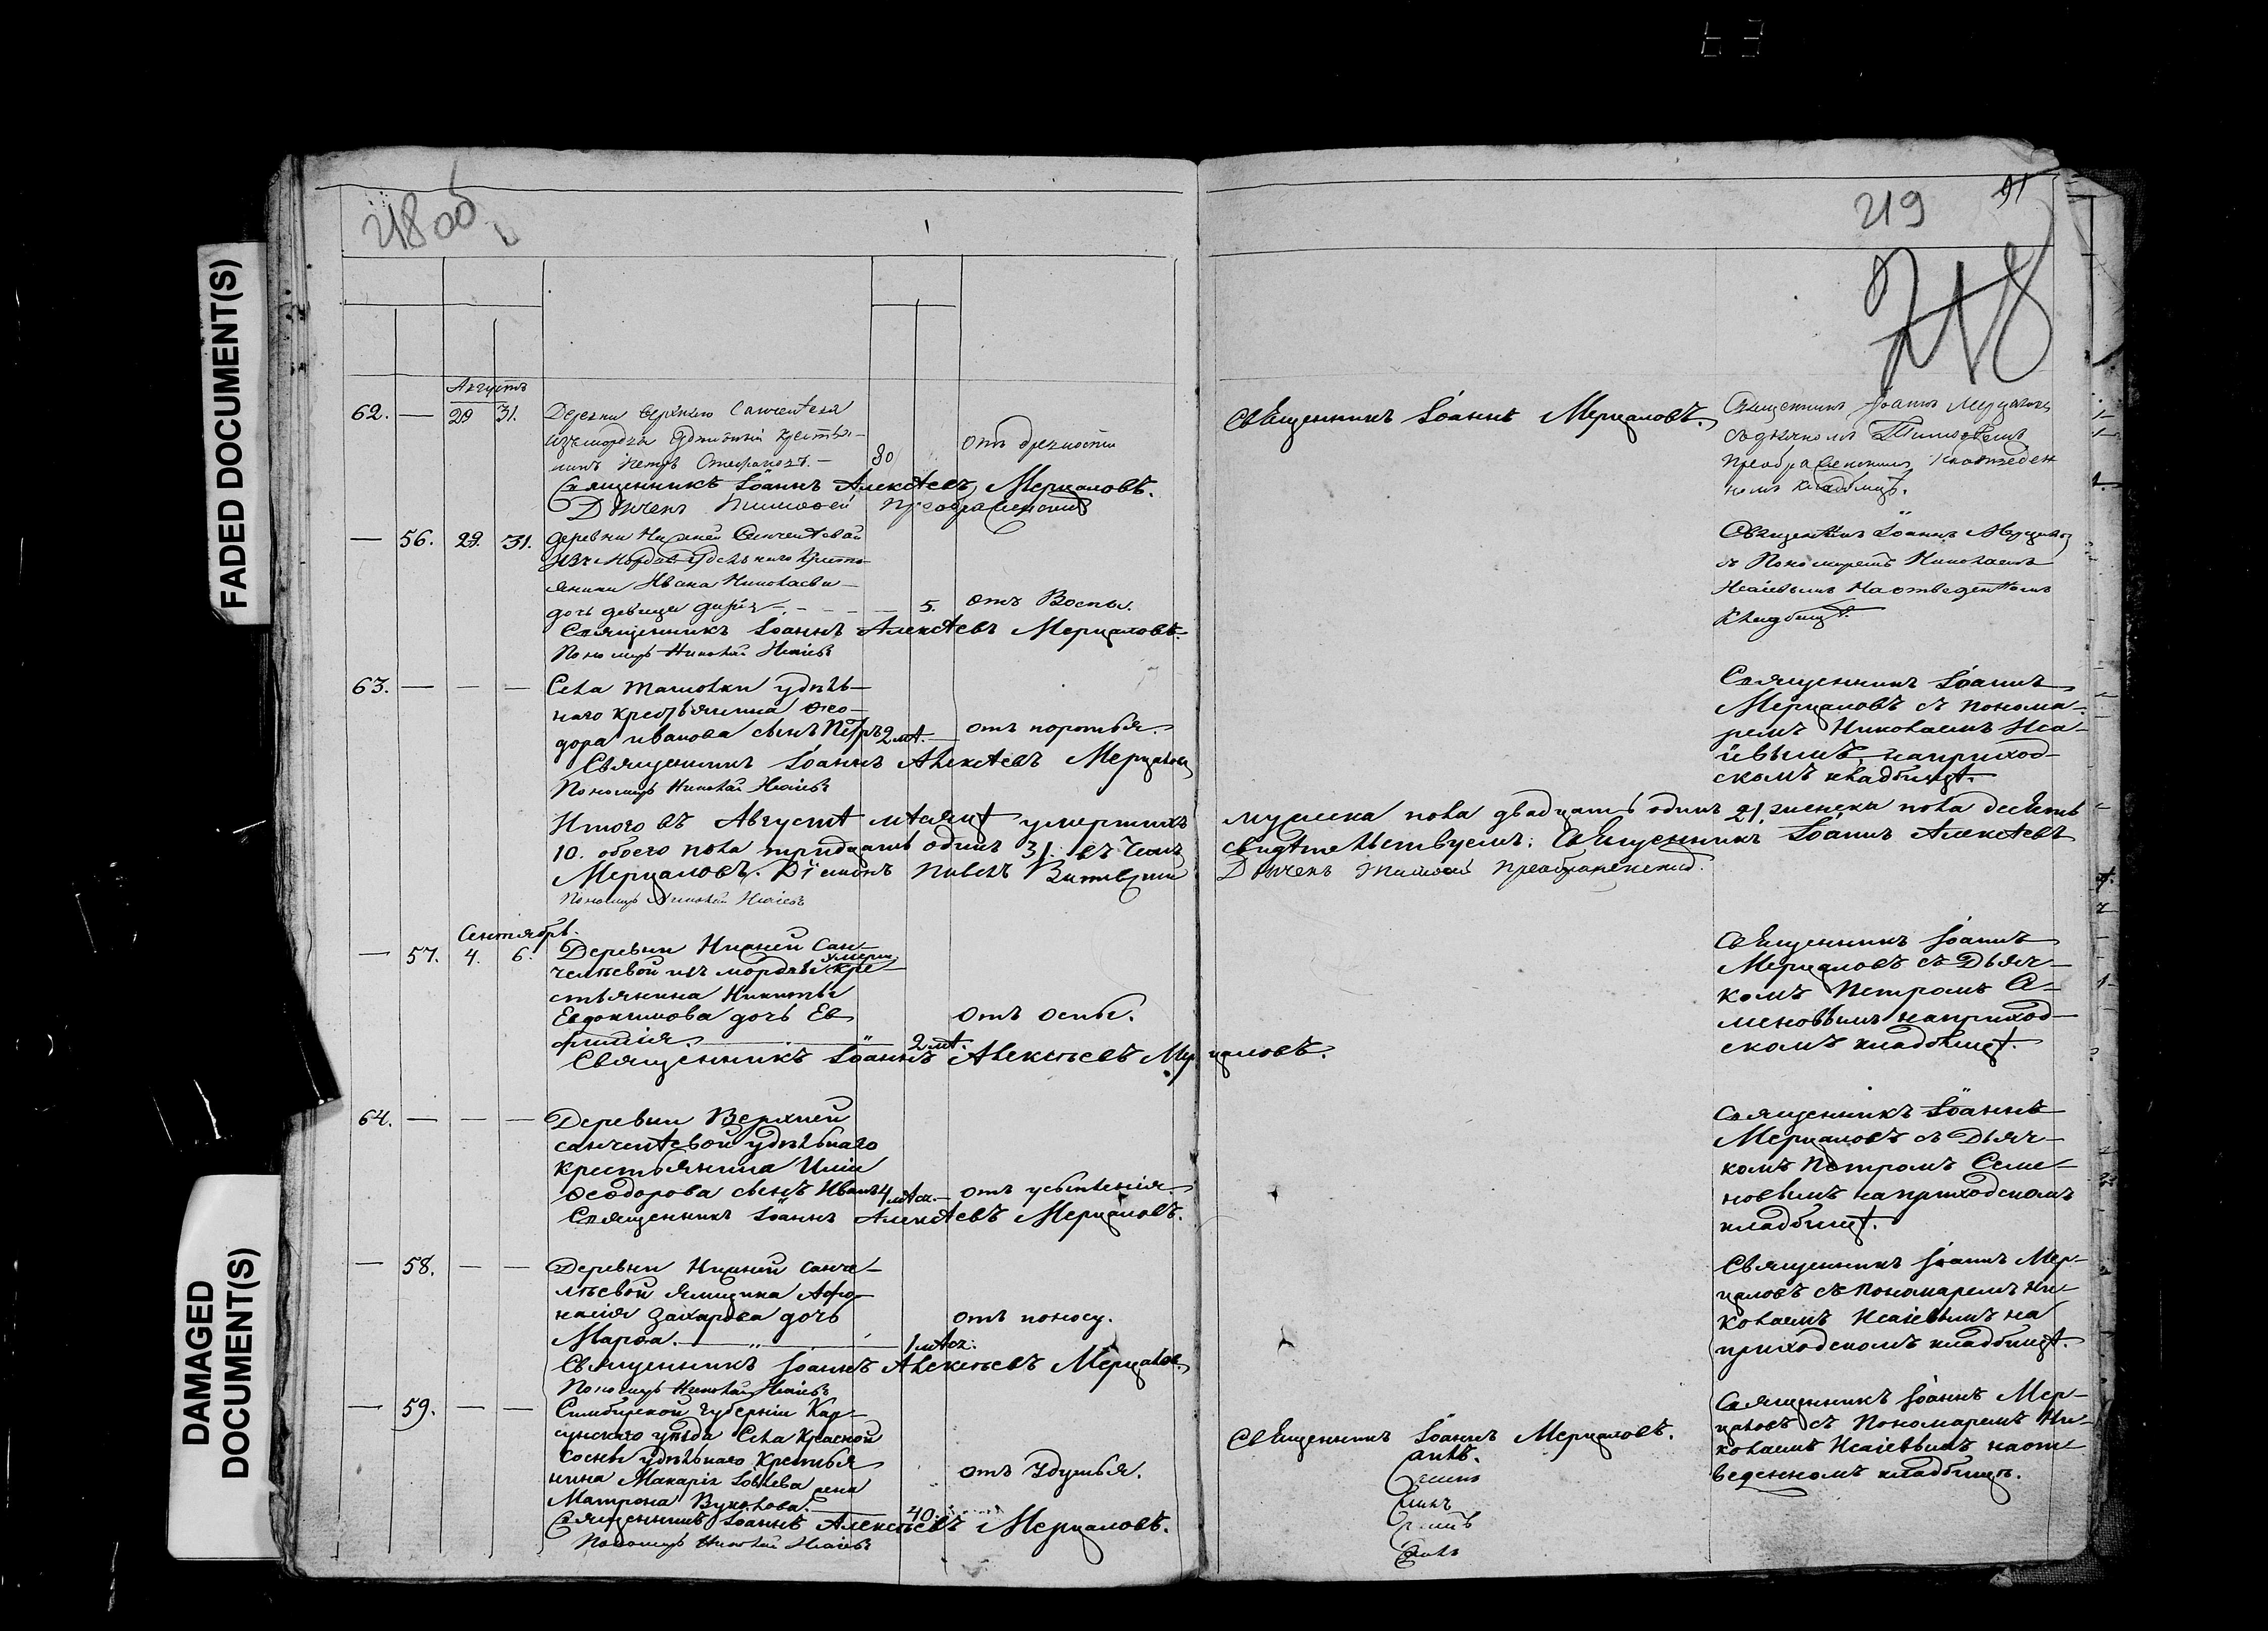 FADED DOCUMENT(S)
DAMAGED
DOCUMENT(S)
218 об
219
91
218
Августъ
62. — 29 31. Деревни Верхнею Санчелеева
изъ мордвы удѣльный крестья-
нинъ Петръ Стефановъ. — 80 отъ древности
Священникъ Іоаннъ Алексѣевъ Мерцаловъ.
Дьячекъ Тимофей Преображенский
Священникъ Іоаннъ Мерцаловъ.
Священникъ Іоаннъ Мерцаловъ
съ дьячкомъ Тимофеемъ
Преображенскимъ на отведен
номъ кладбищѣ.
— 56. 29. 31. деревни Нижней Санчелѣевой
изъ Мордвы удѣльнаго Кресть
янина Ивана Николаева
дочь девица Дарья — 5. отъ Воспы.
Священникъ Іоаннъ Алексѣевъ Мерцаловъ.
Пономарь Николай Исаіевъ
Священникъ Іоаннъ Мерцаловъ
съ Пономаремъ Николаемъ
Исаіевымъ На отведенномъ
Кладбищѣ.
63. — — — Села Ташолки удѣль-
наго крестьянина Ѳео-
дора Иванова сынъ Петръ 2 лѣт. — отъ поротья.
Священникъ Іоаннъ Алексѣевъ Мерцаловъ
Пономарь Николай Исаіевъ
Священникъ Іоаннъ
Мерцаловъ съ понома-
ремъ Николаемъ Иса-
іевымъ, на приход-
скомъ кладбищѣ.
Итого въ Августѣ мѣсяцѣ умершихъ мужеска пола двадцать одинъ 21, женска пола десять
10. обоего пола тридцать одинъ 31. въ чемъ свидѣтельствуемъ: Священникъ Іоаннъ Алексѣевъ
Мерцаловъ. Діаконъ Павелъ Дьячекъ Тимофей Преображенский.
Пономарь Николай Исаіевъ
Сентябрь.
— 57. 4. 6. Деревни Нижней Сан-
челѣевой изъ мордвы кре-
стьянина Никиты
Евдокимова дочь Ев
фимія. — 2 лѣт. отъ оспы.
Священникъ Іоаннъ Алексѣевъ Мерцаловъ.
Священникъ Іоаннъ
Мерцаловъ съ Дьяч-
комъ Петромъ Се-
меновымъ на приход-
скомъ кладбищѣ.
64. — — — Деревни Верхней
санчелѣевой удѣльнаго
крестьянина Иліи
Ѳеодорова сынъ Иванъ 4 мѣся. —
Священникъ Іоаннъ Алексѣевъ Мерцаловъ.
Священникъ Іоаннъ
Мерцаловъ съ Дьяч-
комъ Петромъ Семе-
новымъ на приходскомъ
кладбищѣ.
— 58. — — Деревни Нижней санче-
лѣевой ямщика Афо-
насія Захарова дочь
Марфа. — 1 мѣся. отъ поносу.
Священникъ Іоаннъ Алексѣевъ Мерцалов.
Пономарь Николай Исаіевъ
Священникъ Іоаннъ Мер-
цаловъ съ Пономаремъ Ни-
колаемъ Исаіевымъ на
приходскомъ кладбищѣ.
— 59. — — Симбирской губерніи Кар-
сунскаго уѣзда Села Красной
Сосны удѣльнаго Крестья
нина Макарія Іовлева жена
Матрона Вуколова. — 40. отъ Удушья.
Священникъ Іоаннъ Алексѣевъ Мерцаловъ.
Пономарь Николай Исаіевъ
Священникъ Іоаннъ Мерцаловъ.
Священникъ Іоаннъ Мер-
цаловъ съ Пономаремъ Ни-
колаемъ Исаіевымъ на от-
веденномъ кладбищѣ.